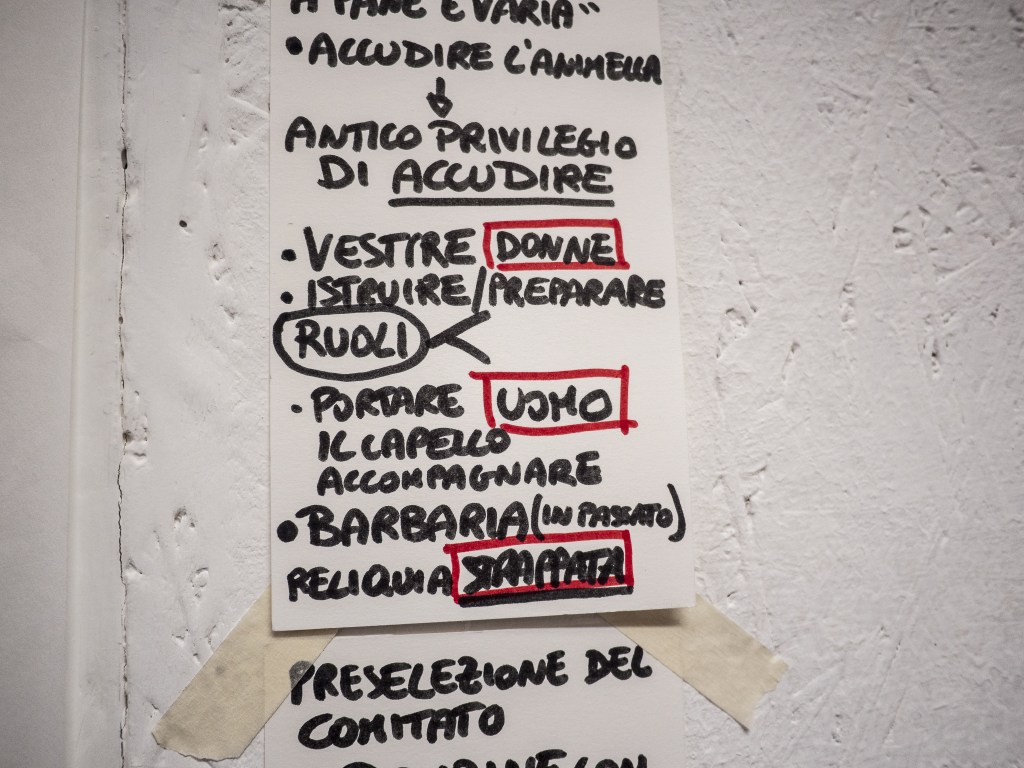 A PANE E VARIA"
• ACCUDIRE L'ANIMELLA
ANTICO PRIVILEGIO
DI ACCUDIRE
• VESTIRE DONNE
• ISTRUIRE/PREPARARE
RUOLI <
• PORTARE UOMO
IL CAPELLO
ACCOMPAGNARE
• BARBARIA (IN PASSATO)
RELIQUIA STRAPPATA
PRESELEZIONE DEL
COMITATO